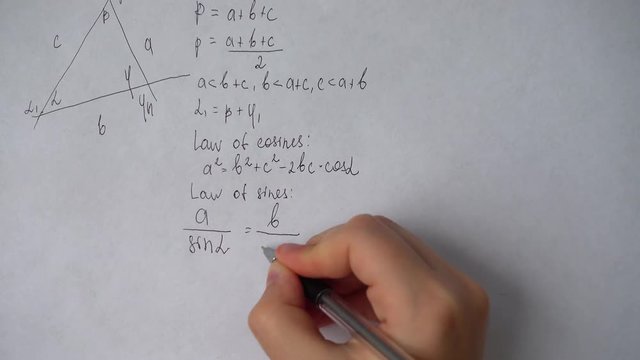 β
c
a
α₁
α
γ
γ₁
b
P = a+b+c
p = a+b+c / 2
a<b+c, b<a+c, c<a+b
α₁ = β + γ₁
Law of cosines:
a² = b²+c²-2bc·cosα
Law of sines:
a / sinα = b